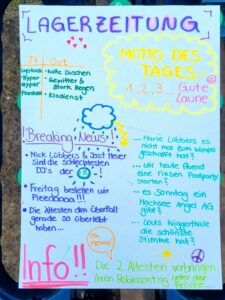 LAGERZEITUNG
MOTTO DES
TAGES
1, 2, 3... Gute
Laune
IN Out
kalte Duschen
Gewitter &
Stark Regen
Klodienst
Breaking News!
Nick Lübbers & Jost
sind die schlechtesten
DJ's der
Freitag bestellen wir
Pizzaaaa!!!
Die Ältesten den Überfall
gerade so überlebt
haben...
... Marie Lübbers es
nicht mal zum Wimpel
geschafft hat?
... wir heute Abend
eine riesen Poolparty
starten?
... es Sonntag ein
Hochsee Angel AG
gibt?
... Louis
die schönste
Stimme hat?
Oh,
Henry!
Info!!
Die 2 Ältesten verbringen
ihren Robinsontag unter der
Brücke...